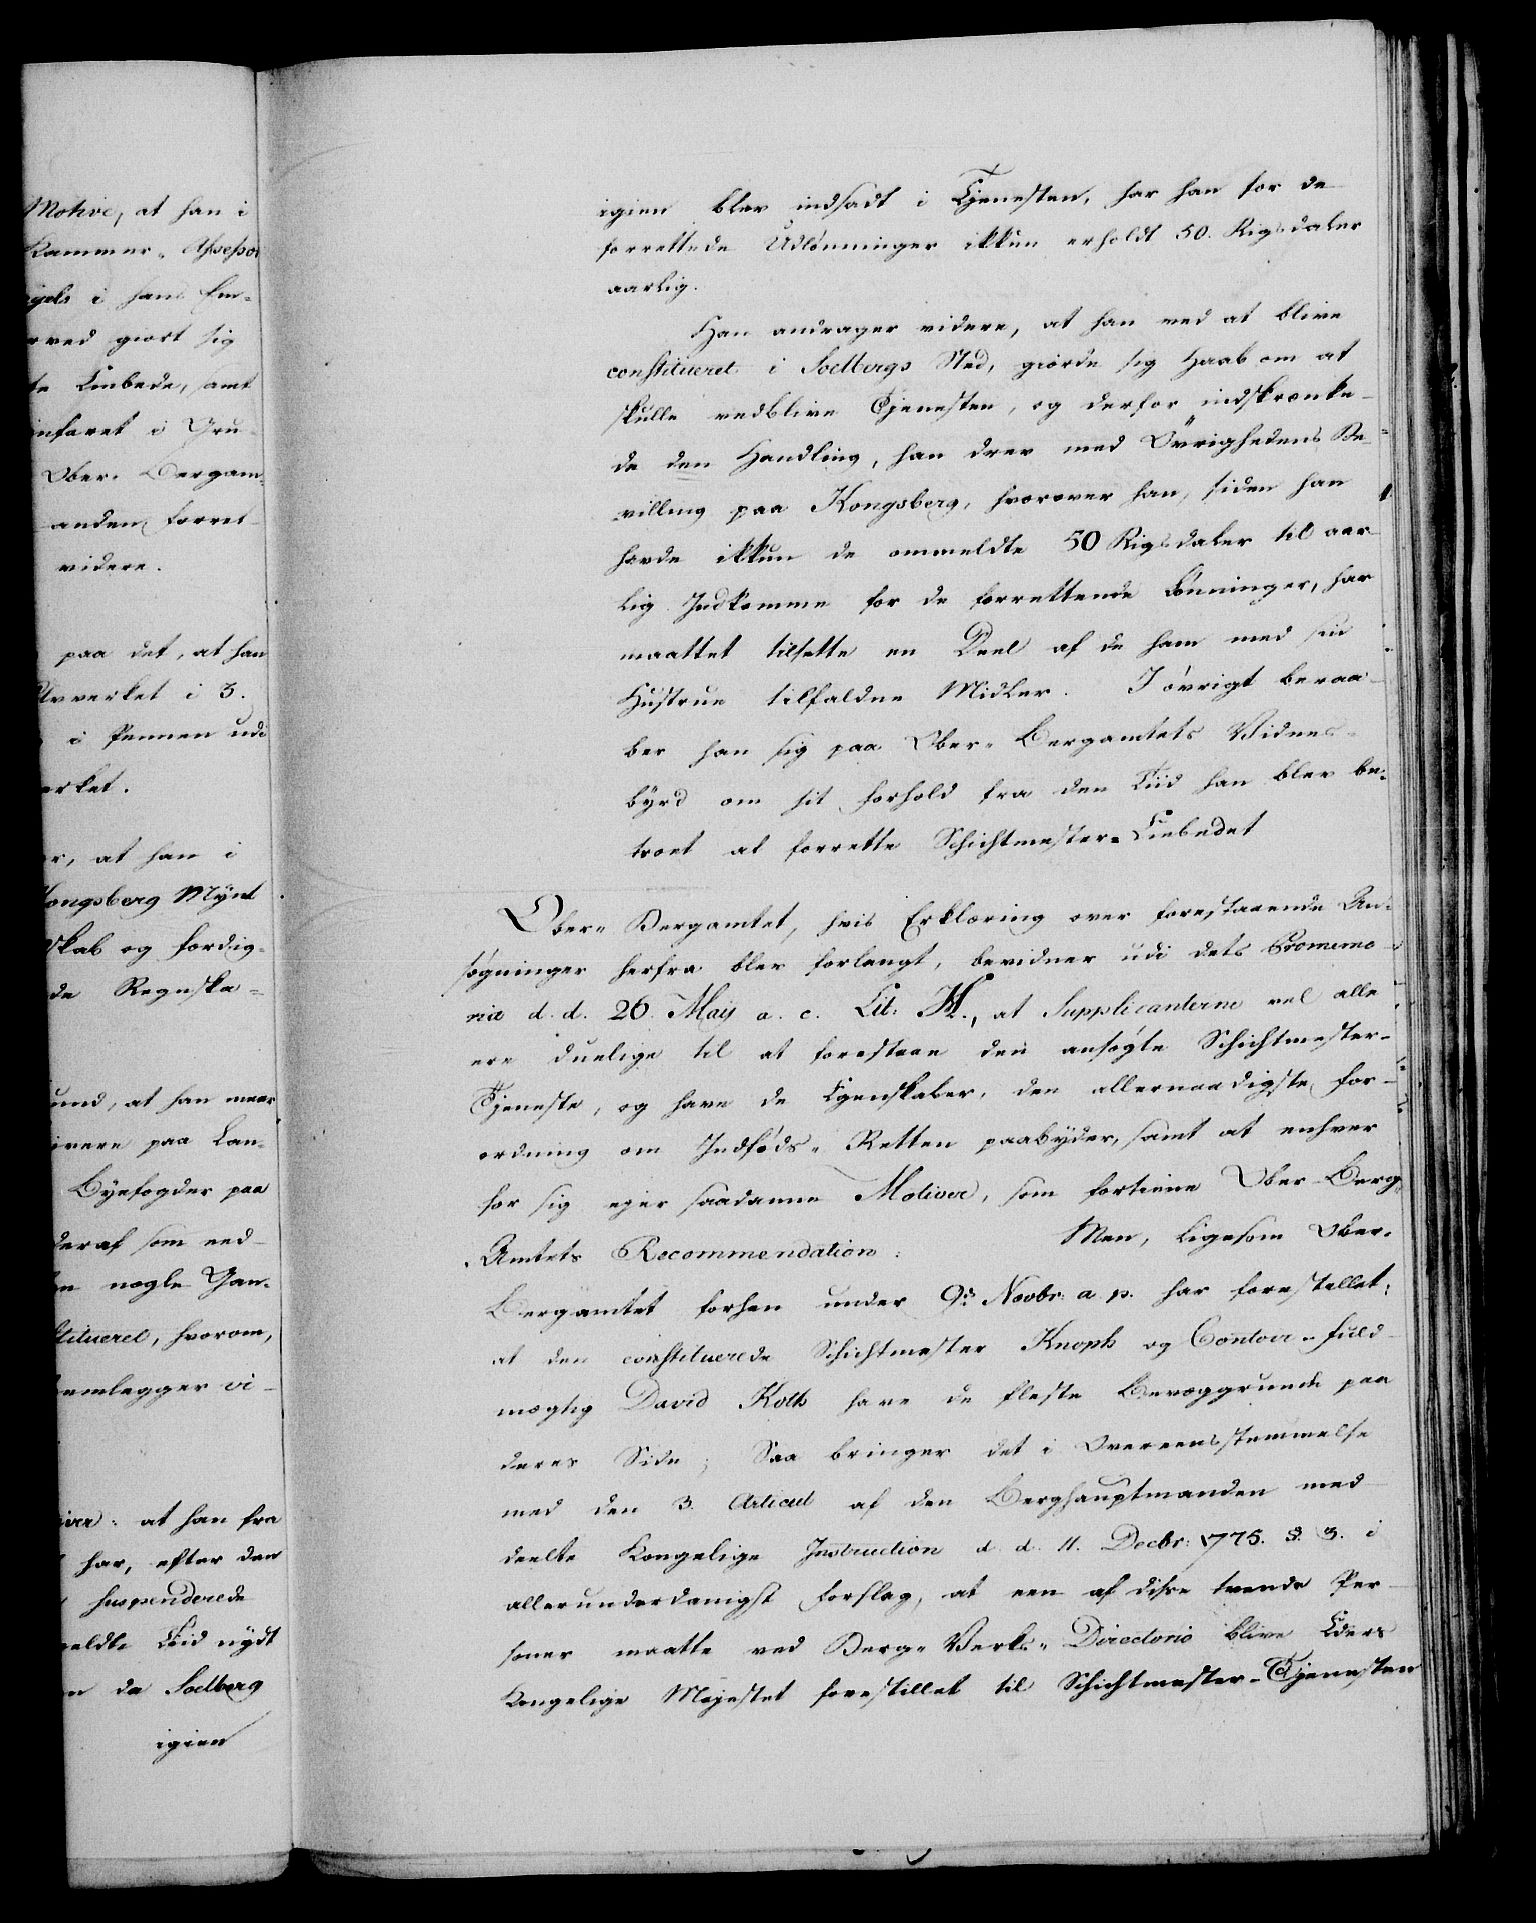 Motive, at han i
Kammer-Assessor
hans Em-
ved giort sig
Embede, samt
infaret i Gru-
Ober-Bergam-
anden forret-
videre.
paa det, at han
verket i 3.
i Pennen udi
erket.
at han i
Kongsberg Mynt
skab og færdig-
de Regnska-
und, at han meer
paa Lan-
Byefogder paa
deraf som ned-
nogle Gan-
stitueret, hvorom,
remlegger vi-
at han fra
har, efter den
suspenderede
meldte Tiid nydt
da Soelberg
igien
igien blev indsadt i Tjenesten, har han for de
forrettede Udlønninger ikkun erholdt 50. Rigsdaler
aarlig.
Han andrager videre, at han ved at blive
constitueret i Soelbergs Sted, giorde sig Haab om at
skulle vedblive Tjenesten, og derfor indskrænke-
de den Handling, han drev med Øvrighedens Be-
villing paa Kongsberg, hvorover han, siden han
havde ikkun de ommeldte 50 Rigsdaler til aar-
lig Indkomme for de forrettende Lønninger, har
maattet tilsette en Deel af de ham med sin
Hustrue tilfaldne Midler. I øvrigt beraa-
ber han sig paa Ober-Bergamtets Vidnes-
byrd om sit Forhold fra den Tiid han blev be-
troet at forrette Schichtmester-Embedet
Ober-Bergamtet, hvis Erklæring over forestaaende An-
søgninger herfra blev forlangt, bevidner udi dets Promemo-
ria d. d. 26. Maij a. c. Lit: H., at Supplicanterne vel alle
ere duelige til at forestaae den ansøgte Schichtmester-
Tjeneste, og have de Egenskaber, den allernaadigste For-
ordning om Indføds-Retten paabyder, samt at enhver
for sig ejer saadanne Motiver, som fortiene Ober-Berg-
Amtets Recommendation: Men, ligesom Ober-
Bergamtet forhen under 9de Novbr: a. p. har forestillet:
at den constituerede Schichtmester Knoph og Contoir-Fuld-
mægtig David Kolb have de fleste Bevæggrunde paa
deres Side; Saa bringer det i Overeensstemmelse
med den 3. Articul af den Berghauptmanden med-
deelte Kongelige Instruction d. d. 11. Decbr: 1775. §. 3. i
allerunderdanigst Forslag, at een af disse tvende Per-
soner maatte ved Berg-Verks-Directorio blive Eders
Kongelige Majestet forestillet til Schichtmester-Tjenesten